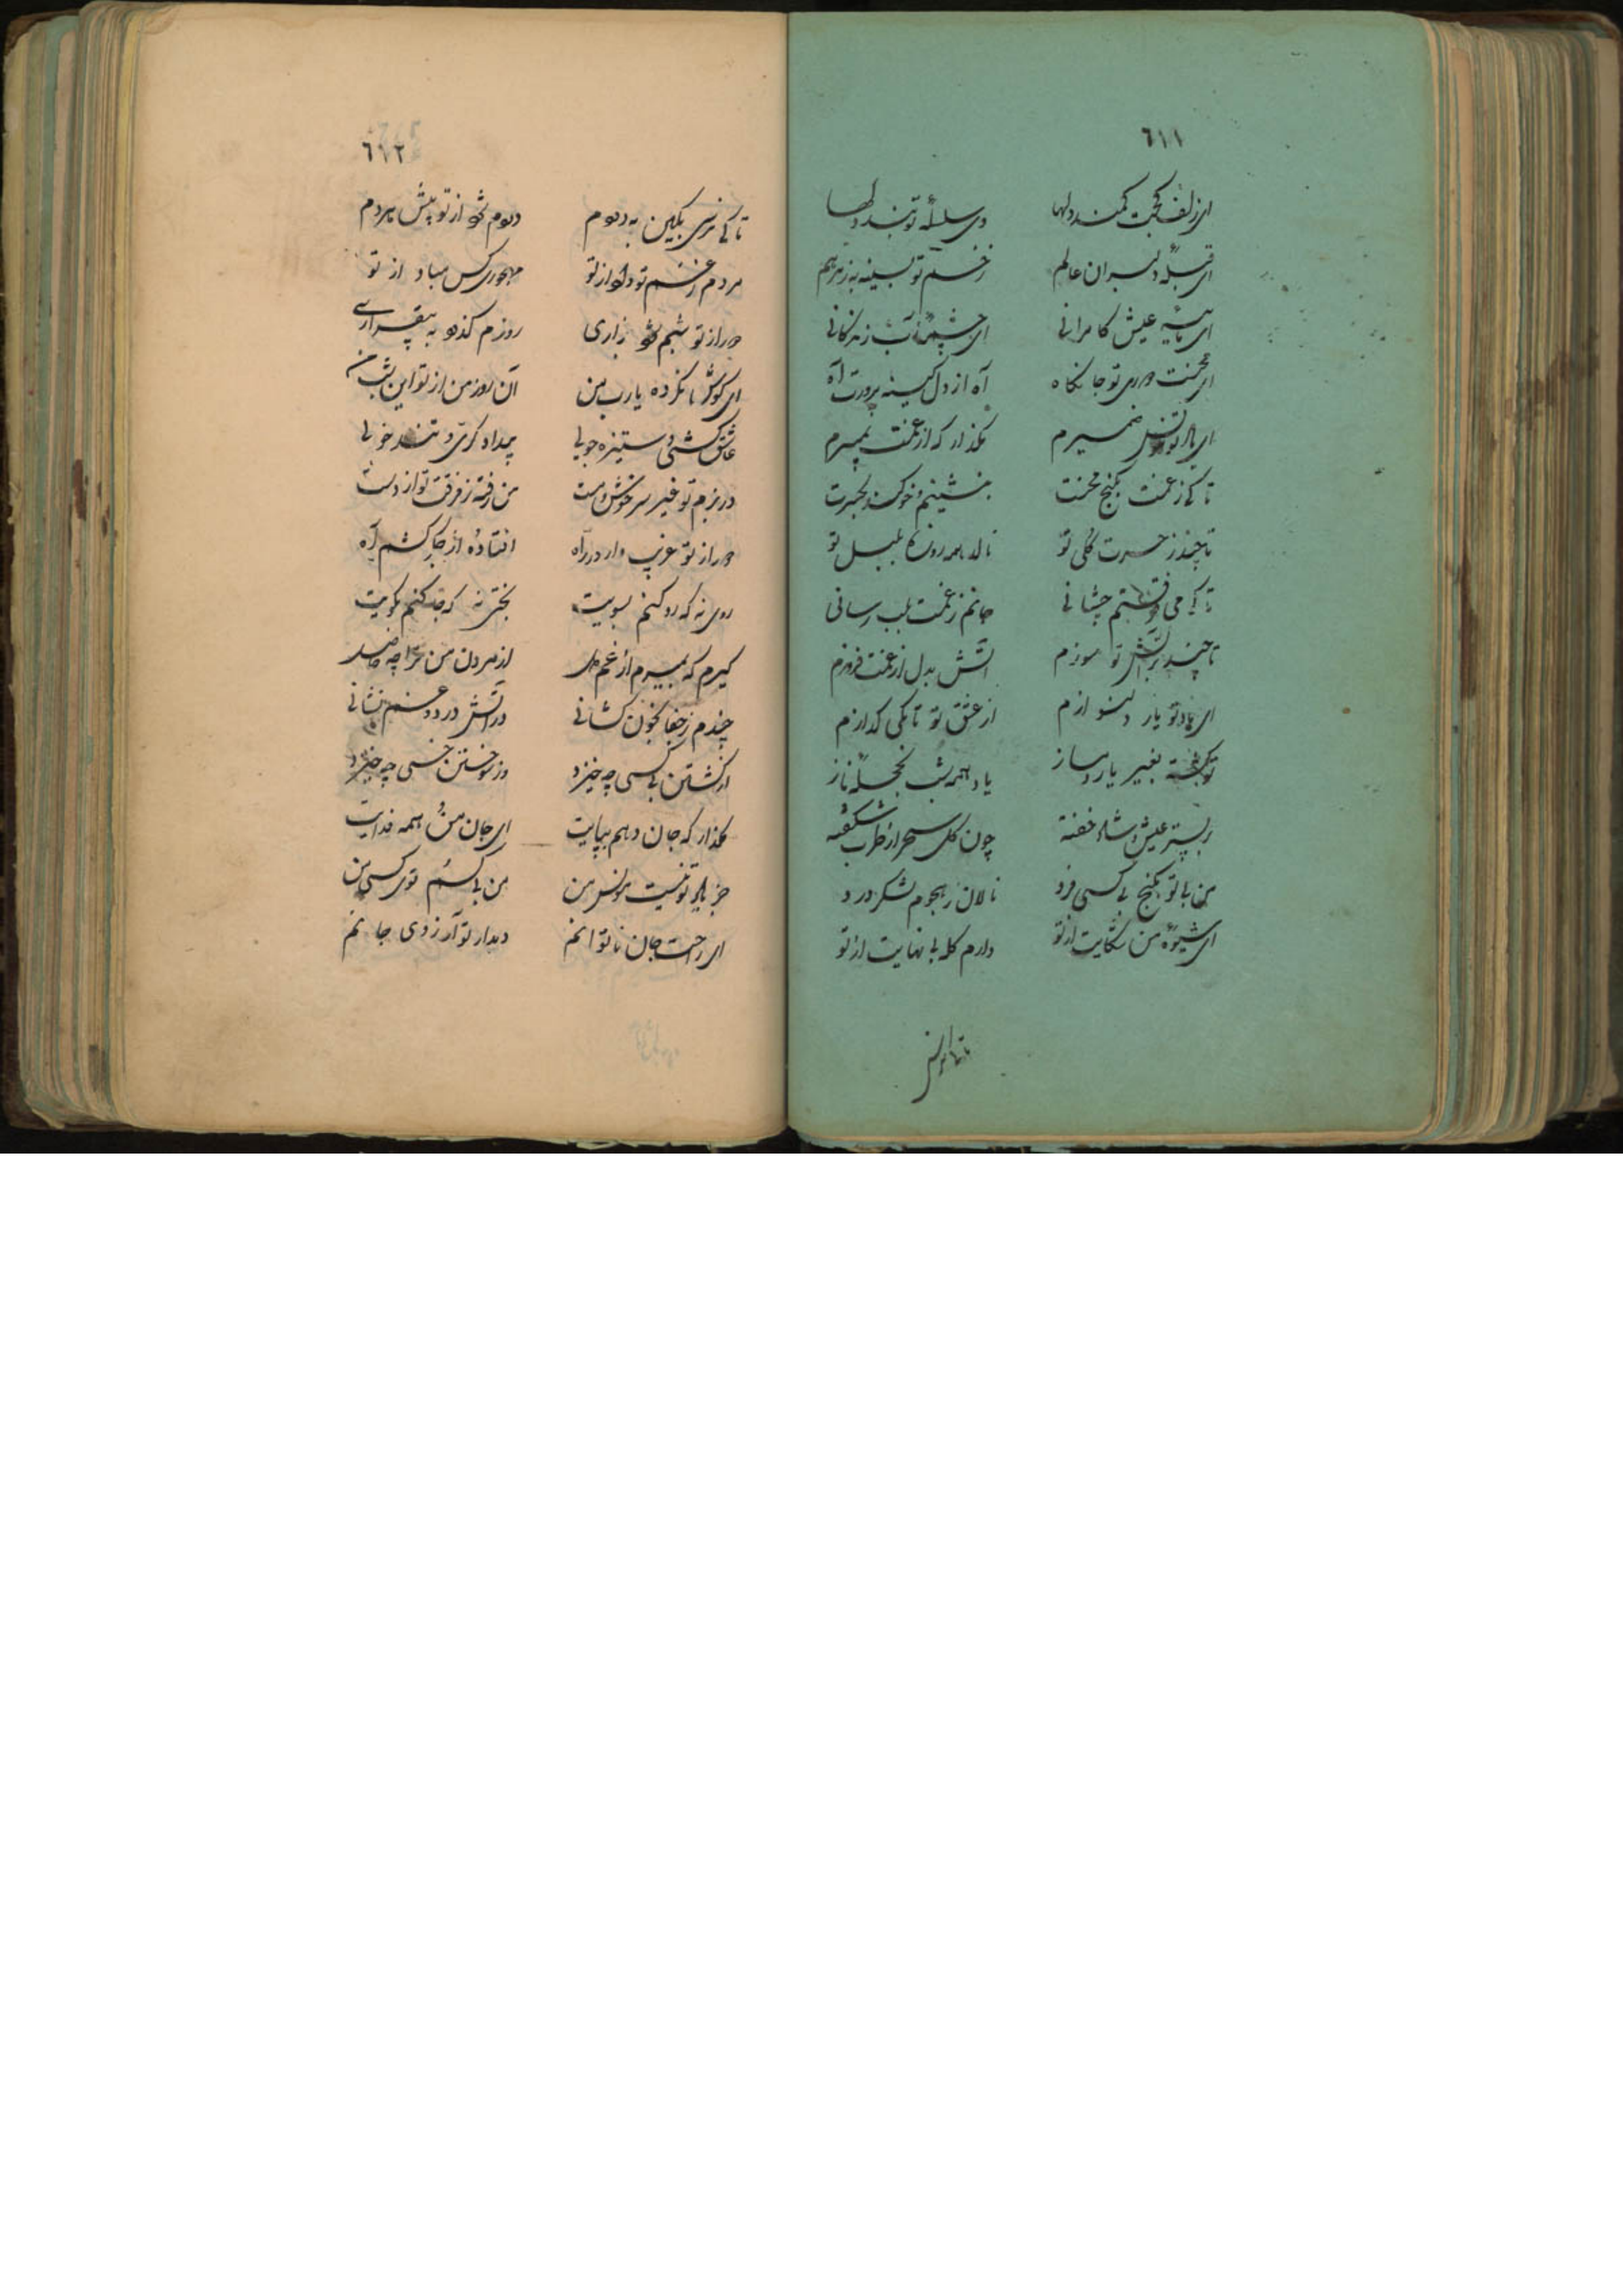 ٦١١
ای زلف کجت کمند دلها وی سلسلهٔ تو بند دلها
ای قبلهٔ دلبران عالم زخم تو بسینه به ز مرهم
ای مایهٔ عیش کامرانی ای چشمهٔ آب زندکانی
ای محنت دوری تو جانکاه آه از دل کینه پرورت آه
ای یاد تو مونس ضمیرم مکذار که از غمت بمیرم
تا کی ز غمت بکنج محنت بنشینم و خو کنم بحسرت
تا چند ز حسرت کل تو نالد همه روز بلبل تو
تا کی می فرقتم چشانی جانم ز غمت بلب رسانی
تا چند بر آتش تو سوزم آتش بدل از غمت فروزم
ای یاد تو یار دلنوازم از عشق تو تا بکی کدازم
تو کشته بغیر یار و دمساز یاد همه شب بحجلهٔ ناز
بر بستر عیش و شاد خفته چون کل سحر از طرب شکفته
من با تو بکنج بی کسی فرد نالان ز هجوم لشکر درد
ای شیوهٔ من شکایت از تو دارم کله بی نهایت از تو
٦١٢
تا کی نرسی بکین به دردم دردم نکر از تو پیش مردم
مردم ز غم تو داد از تو مهجوری کس مباد از تو
دور از تو شبم بزاری روزم کذرد به بیقراری
ای کوش نکرده یارب من آن روز من از تو این شب من
عاشق کشی و ستیزه جویی بیداد کری و تند خویی
در بزم تو غیر سرخوش و مست من رفته ز فرقت تو از دست
دور از تو غریب وار در راه افتاده از جکر کشم آه
روی نه که رو کنم بسویت بختی نه که جا کنم بکویت
کیرم که بمیرم از غم از مردن من ترا چه حاصل
چندم ز جفا بخون کشانی در آتش درد و غم نشانی
از کشتن بی کسی چه خیزد وز سوختن خسی چه خیزد
بکذار که جان دهم بپایت ای جان من و همه فدایت
جز یاد تو نیست مونس من من بی کسم تو کس من
ای راحت جان ناتوانم دیدار تو آرزوی جانم